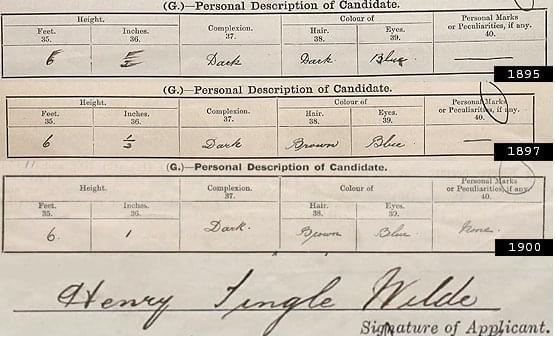 (G.)—Personal Description of Candidate.
Height. Complexion. 37. Colour of Personal Marks or Peculiarities, if any. 40.
Feet. 35. Inches. 36. Hair. 38. Eyes. 39.
6 Dark Dark Blue
1895
(G.)—Personal Description of Candidate.
Height. Complexion. 37. Colour of Personal Marks or Peculiarities, if any. 40.
Feet. 35. Inches. 36. Hair. 38. Eyes. 39.
6 Dark Brown Blue —
1897
(G.)—Personal Description of Candidate.
Height. Complexion. 37. Colour of Personal Marks or Peculiarities, if any. 40.
Feet. 35. Inches. 36. Hair. 38. Eyes. 39.
6. 1 Dark. Brown Blue None.
1900
Henry Tingle Wilde
Signature of Applicant.